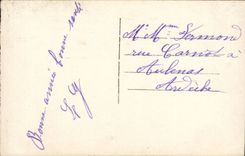 Bonne année bonne santé
Mr Mme Vermond
rue Carnot à
Aubenas
Ardèche